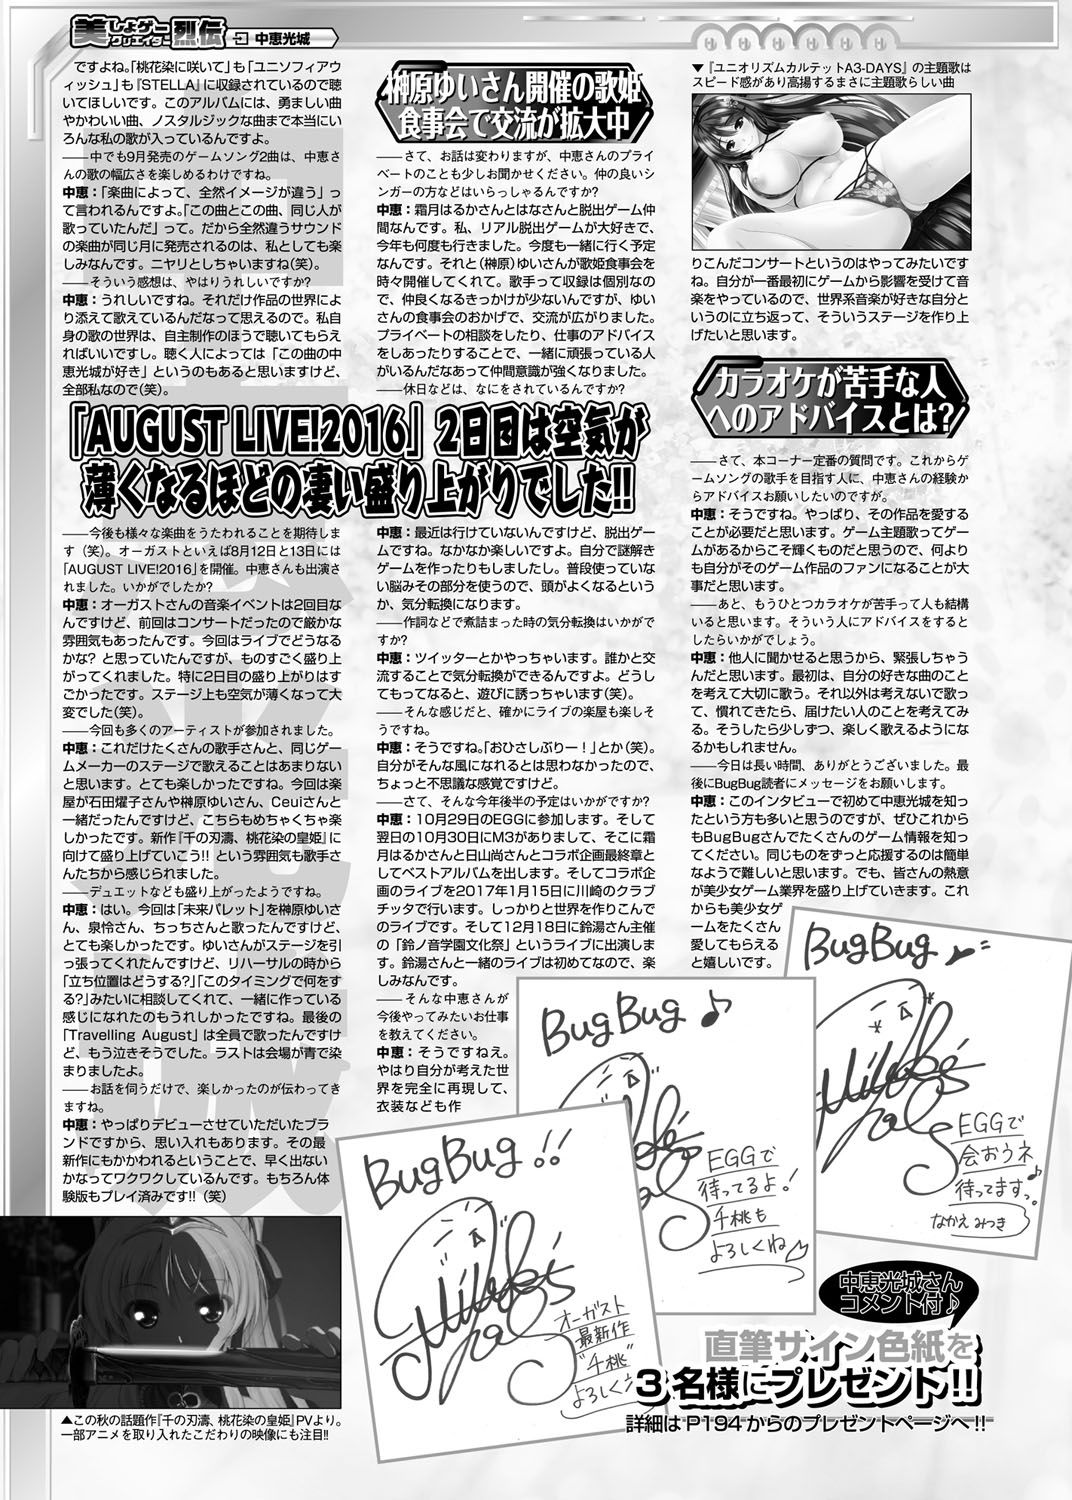 美しょゲークリエイター烈伝 中恵光城
ですよね。「桃花染に咲いて」も「ユニソフィアウ
ィッシュ」も『STELLA』に収録されているので聴
いてほしいです。このアルバムには、勇ましい曲
やかわいい曲、ノスタルジックな曲まで本当にい
ろんな私の歌が入っているんですよ。
――中でも9月発売のゲームソング2曲は、中恵さ
んの歌の幅広さを楽しめるわけですね。
中恵：「楽曲によって、全然イメージが違う」っ
て言われるんですよ。「この曲とこの曲、同じ人が
歌っていたんだ」って。だから全然違うサウンド
の楽曲が同じ月に発売されるのは、私としても楽
しみなんです。ニヤリとしちゃいますね（笑）。
――そういう感想は、やはりうれしいですか？
中恵：うれしいですね。それだけ作品の世界によ
り添えて歌えているんだなって思えるので。私自
身の歌の世界は、自主制作のほうで聴いてもらえ
ればいいですし。聴く人によっては「この曲の中
恵光城が好き」というのもあると思いますけど、
全部私なので（笑）。
榊原ゆいさん開催の歌姫
食事会で交流が拡大中
――さて、お話は変わりますが、中恵さんのプライ
ベートのことも少しお聞かせください。仲の良いシ
ンガーの方などはいらっしゃるんですか？
中恵：霜月はるかさんとはなさんと脱出ゲーム仲
間なんです。私、リアル脱出ゲームが大好きで、
今年も何度も行きました。今度も一緒に行く予定
なんです。それと（榊原）ゆいさんが歌姫食事会を
時々開催してくれて。歌手って収録は個別なの
で、仲良くなるきっかけが少ないんですが、ゆい
さんの食事会のおかげで、交流が広がりました。
プライベートの相談をしたり、仕事のアドバイス
をしあったりすることで、一緒に頑張っている人
がいるんだなあって仲間意識が強くなりました。
――休日などは、なにをされているんですか？
「AUGUST LIVE!2016」2日目は空気が
薄くなるほどの凄い盛り上がりでした!!
――今後も様々な楽曲をうたわれることを期待しま
す（笑）。オーガストといえば8月12日と13日には
「AUGUST LIVE!2016」を開催。中恵さんも出演さ
れました。いかがでしたか？
中恵：オーガストさんの音楽イベントは2回目な
んですけど、前回はコンサートだったので厳かな
雰囲気もあったんです。今回はライブでどうなる
かな？ と思っていたんですが、ものすごく盛り上
がってくれました。特に2日目の盛り上がりはす
ごかったです。ステージ上も空気が薄くなって大
変でした（笑）。
――今回も多くのアーティストが参加されました。
中恵：これだけたくさんの歌手さんと、同じゲー
ムメーカーのステージで歌えることはあまりない
と思います。とても楽しかったですね。今回は楽
屋が石田燿子さんや榊原ゆいさん、Ceuiさんと
一緒だったんですけど、こちらもめちゃくちゃ楽
しかったです。新作『千の刃濤、桃花染の皇姫』に
向けて盛り上げていこう!! という雰囲気も歌手さ
んたちから感じられました。
――デュエットなども盛り上がったようですね。
中恵：はい。今回は「未来パレット」を榊原ゆいさ
ん、泉怜さん、ちっちさんと歌ったんですけど、
とても楽しかったです。ゆいさんがステージを引
っ張ってくれたんですけど、リハーサルの時から
「立ち位置はどうする？」「このタイミングで何をす
る？」みたいに相談してくれて、一緒に作っている
感じになれたのもうれしかったですね。最後の
「Travelling August」は全員で歌ったんですけ
ど、もう泣きそうでした。ラストは会場が青で染
まりましたよ。
――お話を伺うだけで、楽しかったのが伝わってき
ますね。
中恵：やっぱりデビューさせていただいたブラ
ンドですから、思い入れもあります。その最
新作にもかかわれるということで、早く出ない
かなってワクワクしているんです。もちろん体
験版もプレイ済みです!!（笑）
▲この秋の話題作『千の刃濤、桃花染の皇姫』PVより。
一部アニメを取り入れたこだわりの映像にも注目!!
中恵：最近は行けていないんですけど、脱出ゲー
ムですね。なかなか楽しいですよ。自分で謎解き
ゲームを作ったりもしましたし。普段使っていな
い脳みその部分を使うので、頭がよくなるという
か、気分転換になります。
――作詞などで煮詰まった時の気分転換はいかがで
すか？
中恵：ツイッターとかやっちゃいます。誰かと交
流することで気分転換ができるんですよ。どうし
てもってなると、遊びに誘っちゃいます（笑）。
――そんな感じだと、確かにライブの楽屋も楽しそ
うですね。
中恵：そうですね。「おひさしぶりー！」とか（笑）。
自分がそんな風になれるとは思わなかったので、
ちょっと不思議な感覚ですけど。
――さて、そんな今年後半の予定はいかがですか？
中恵：10月29日のEGGに参加します。そして
翌日の10月30日にM3がありまして、そこに霜
月はるかさんと日山尚さんとコラボ企画最終章と
してベストアルバムを出します。そしてコラボ企
画のライブを2017年1月15日に川崎のクラブ
チッタで行います。しっかりと世界を作りこんで
のライブです。そして12月18日に鈴湯さん主催
の「鈴ノ音学園文化祭」というライブに出演しま
す。鈴湯さんと一緒のライブは初めてなので、楽
しみなんです。
――そんな中恵さんが
今後やってみたいお仕事
を教えてください。
中恵：そうですねえ。
やはり自分が考えた世
界を完全に再現して、
衣装なども作
▼『ユニオリズムカルテットA3-DAYS』の主題歌は
スピード感があり高揚するまさに主題歌らしい曲
りこんだコンサートというのはやってみたいです
ね。自分が一番最初にゲームから影響を受けて音
楽をやっているので、世界系音楽が好きな自分と
いうのに立ち返って、そういうステージを作り上
げたいと思います。
カラオケが苦手な人
へのアドバイスとは？
――さて、本コーナー定番の質問です。これからゲ
ームソングの歌手を目指す人に、中恵さんの経験か
らアドバイスお願いしたいのですが。
中恵：そうですね。やっぱり、その作品を愛する
ことが必要だと思います。ゲーム主題歌ってゲー
ムがあるからこそ輝くものだと思うので、何より
も自分がそのゲーム作品のファンになることが大
事だと思います。
――あと、もうひとつカラオケが苦手って人も結構
いると思います。そういう人にアドバイスをすると
したらいかがでしょう。
中恵：他人に聞かせると思うから、緊張しちゃう
んだと思います。最初は、自分の好きな曲のこと
を考えて大切に歌う。それ以外は考えないで歌っ
て、慣れてきたら、届けたい人のことを考えてみ
る。そうしたら少しずつ、楽しく歌えるようにな
るかもしれません。
――今日は長い時間、ありがとうございました。最
後にBugBug読者にメッセージをお願いします。
中恵：このインタビューで初めて中恵光城を知っ
たという方も多いと思うのですが、ぜひこれから
もBugBugさんでたくさんのゲーム情報を知っ
てください。同じものをずっと応援するのは簡単
なようで難しいと思います。でも、皆さんの熱意
が美少女ゲーム業界を盛り上げていきます。これ
からも美少女ゲ
ームをたくさん
愛してもらえる
と嬉しいです。
BugBug
EGGで
会おうネ
待ってますっ。
なかえみつき
BugBug♪
EGGで
待ってるよ！
千桃も
よろしくね
BugBug!!
オーガスト
最新作
“千桃”
よろしく
中恵光城さん
コメント付♪
直筆サイン色紙を
3名様にプレゼント!!
詳細はP194からのプレゼントページへ!!